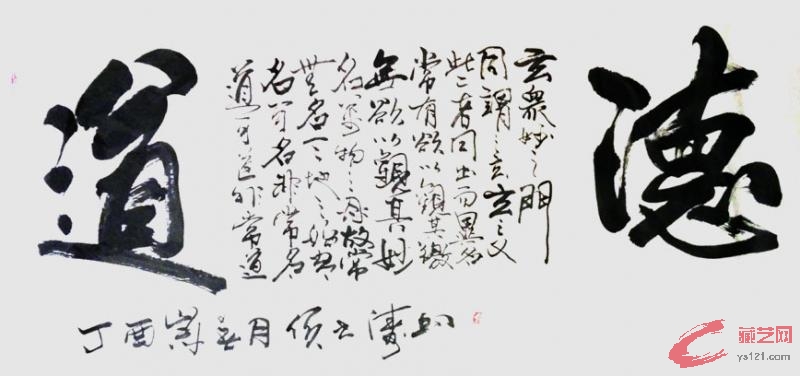 道
道可道非常道
名可名非常名
無名天地之始
名萬物之母故常
無欲以觀其妙
常有欲以觀其徼
此者同出而異名
同謂之玄玄之又
玄眾妙之門
德
丁酉 月
藏艺网
ys121.com